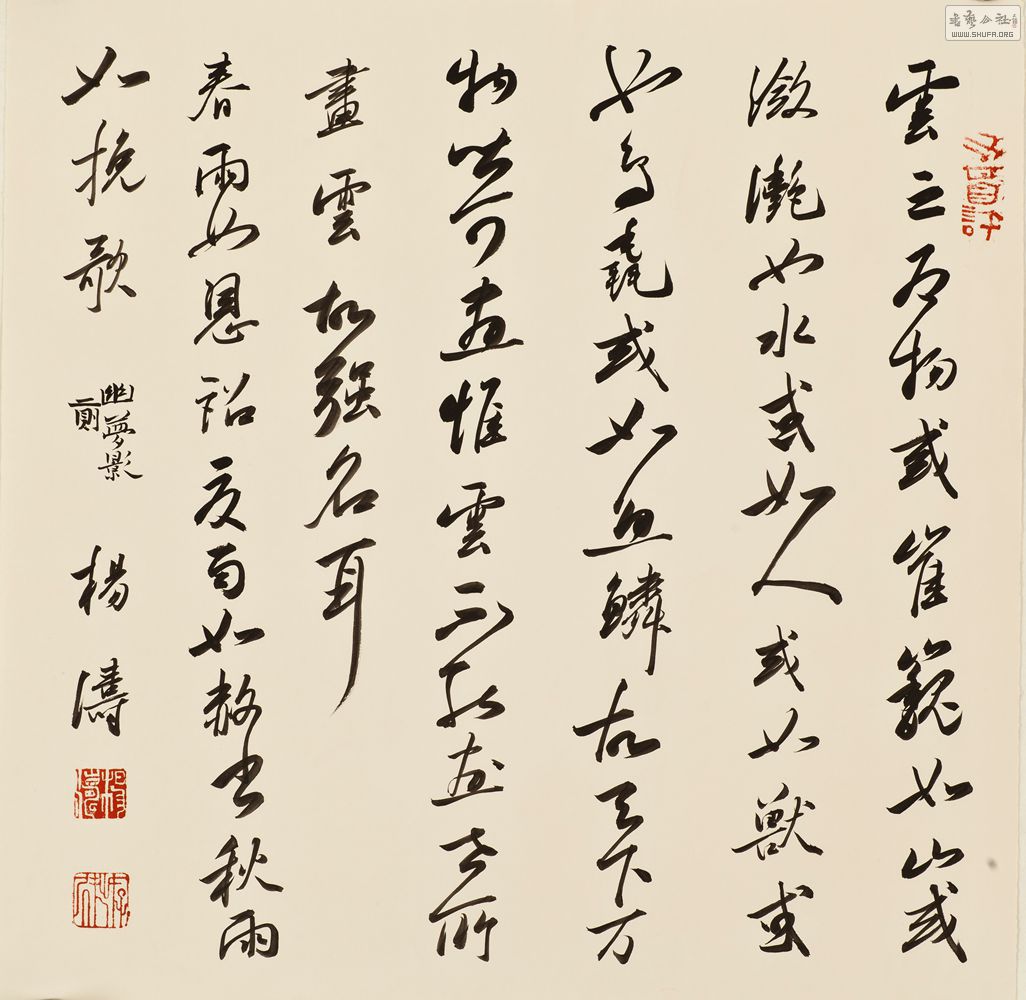 雲之为物或崔巍如山或
潋灩如水或如人或如獸或
如鳥毳或如魚鱗故天下万
物皆可畫惟雲不能畫世所
畫雲故强名耳
春雨如恩詔夏雨如赦書秋雨
如挽歌
幽夢影
二則
楊濤
書藝公社
WWW.SHUFA.ORG